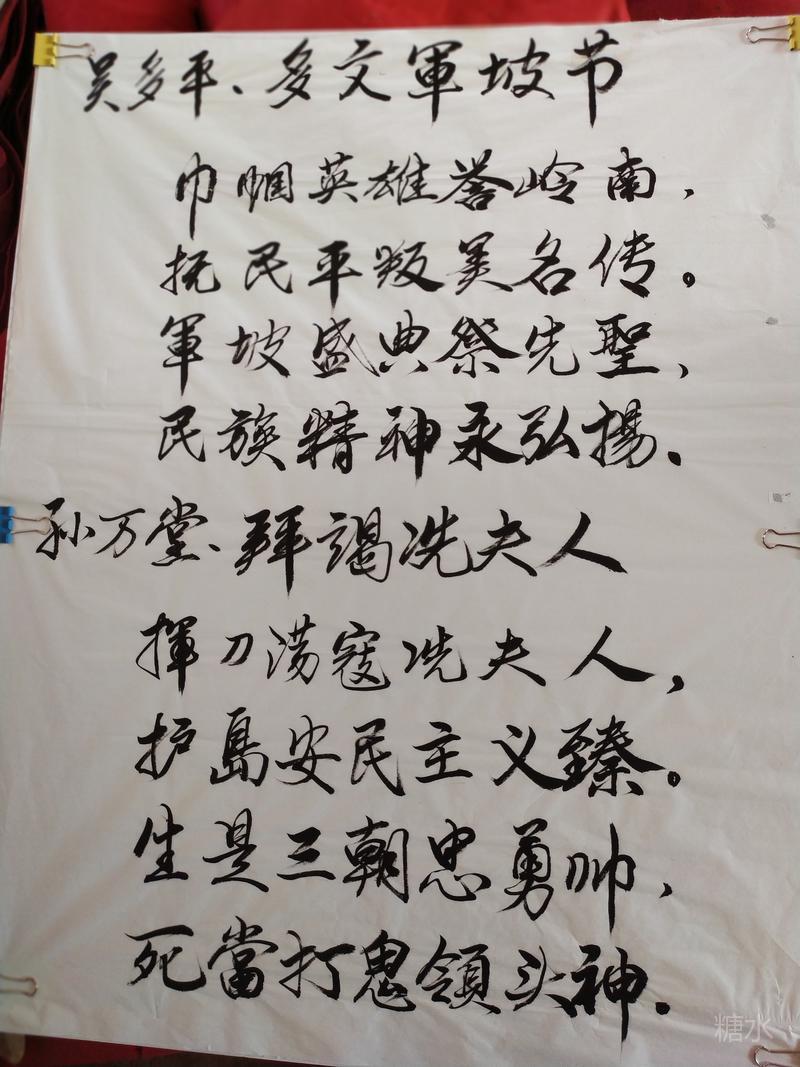 吴多平、多文軍坡节
巾帼英雄誉岭南，
抚民平叛美名传。
軍坡盛典祭先聖，
民族精神永弘揚。
孙万堂、拜謁冼夫人
揮刀荡寇冼夫人，
护島安民主义臻。
生是三朝忠勇帅，
死當打鬼領头神。
糖水